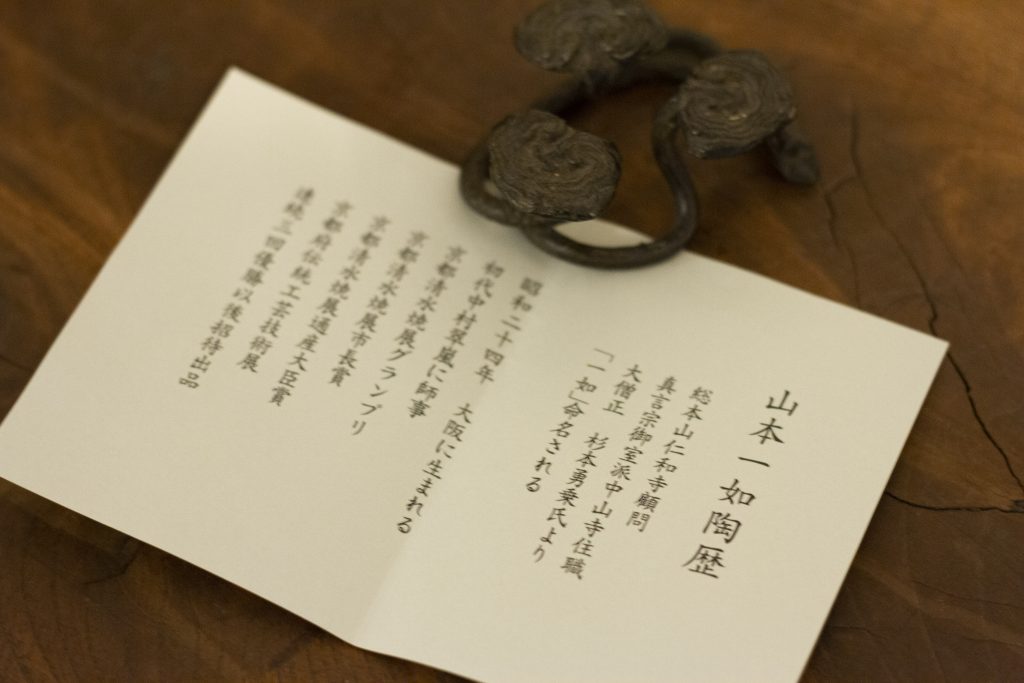 山本一如陶歴
総本山仁和寺顧問
真言宗御室派中山寺住職
大僧正 杉本勇乗氏より
「一如」命名される
昭和二十四年 大阪に生まれる
初代中村翠嵐に師事
京都清水焼展グランプリ
京都清水焼展市長賞
京都清水焼展通産大臣賞
京都府伝統工芸技術展
連続三回優勝以後招待出品